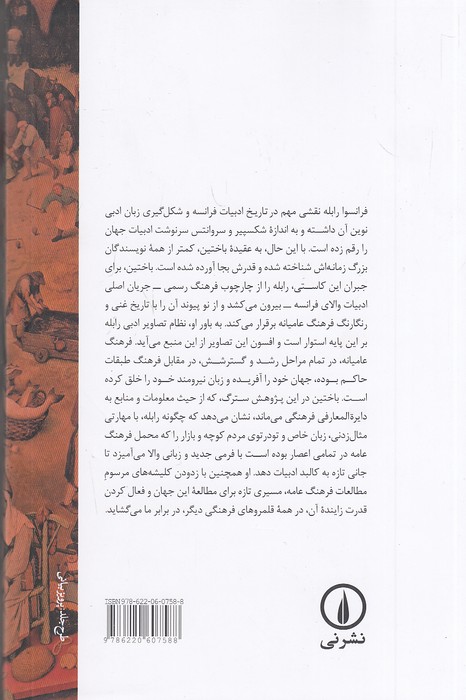 فرانسوا رابله نقشی مهم در تاریخ ادبیات فرانسه و شکل‌گیری زبان ادبی
نوین آن داشته و به اندازهٔ شکسپیر و سروانتس سرنوشت ادبیات جهان
را رقم زده است. با این حال، به عقیدهٔ باختین، کمتر از همهٔ نویسندگان
بزرگ زمانه‌اش شناخته شده و قدرش بجا آورده شده است. باختین، برای
جبران این کاستی، رابله را از چارچوب فرهنگ رسمی ــ جریان اصلی
ادبیات والای فرانسه ــ بیرون می‌کشد و از نو پیوند آن را با تاریخ غنی و
رنگارنگ فرهنگ عامیانه برقرار می‌کند. به باور او، نظام تصاویر ادبی رابله
بر این پایه استوار است و افسون این تصاویر از این منبع می‌آید. فرهنگ
عامیانه، در تمام مراحل رشد و گسترشش، در مقابل فرهنگ طبقات
حاکم بوده، جهان خود را آفریده و زبان نیرومند خود را خلق کرده
است. باختین در این پژوهش سترگ، که از حیث معلومات و منابع به
دایرةالمعارفی فرهنگی می‌ماند، نشان می‌دهد که چگونه رابله، با مهارتی
مثال‌زدنی، زبان خاص و تودرتوی مردم کوچه و بازار را که محمل فرهنگ
عامه در تمامی اعصار بوده است با فرمی جدید و زبانی والا می‌آمیزد تا
جانی تازه به کالبد ادبیات دهد. او همچنین با زدودن کلیشه‌های مرسوم
مطالعات فرهنگ عامه، مسیری تازه برای مطالعهٔ این جهان و فعال کردن
قدرت زایندهٔ آن، در همهٔ قلمروهای فرهنگی دیگر، در برابر ما می‌گشاید.
طرح جلد: پرویز بیانی
ISBN 978-622-06-0758-8
9786220607588
نشرنی